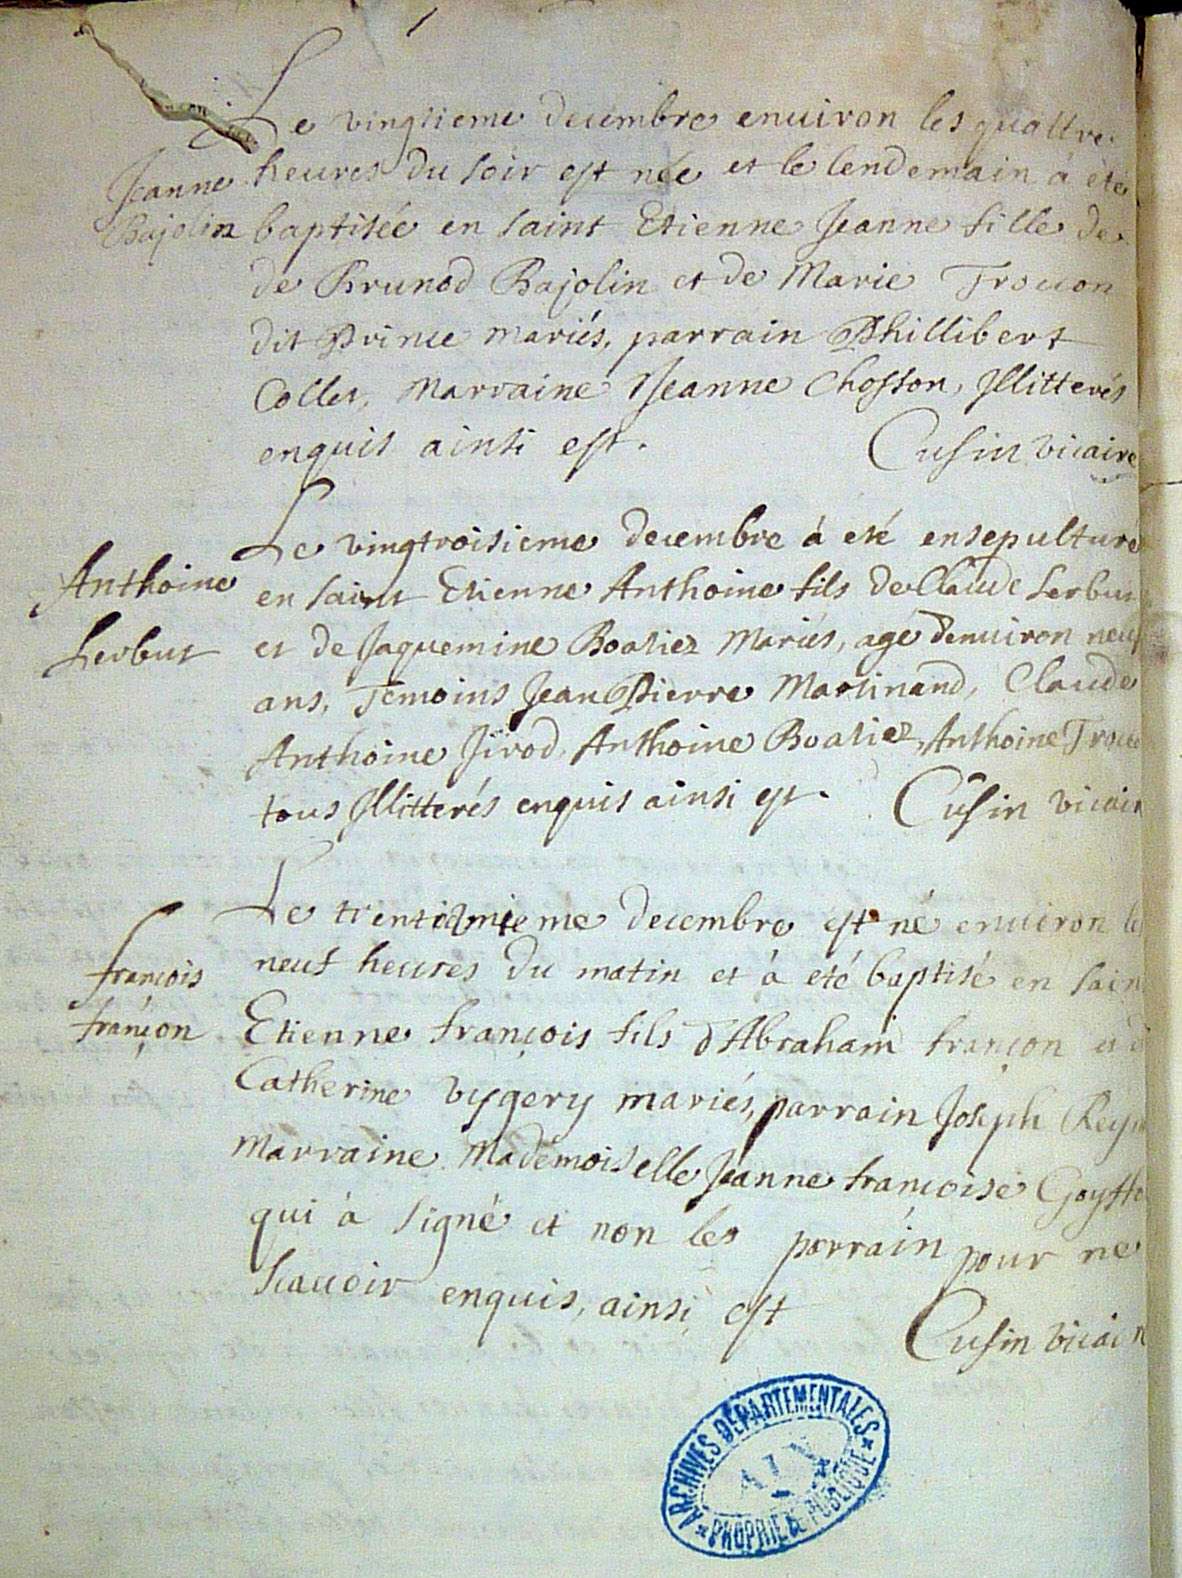 Le vingtieme decembre enuiron les quattre
Jeanne
Bajolin
heures du soir est née et le lendemain à eté
baptisée en saint Etienne Jeanne fille de
de Brunod Bajolin et de Marie Trouon
dit Prince mariés, parrain Phillibert
Collet, Marraine Jeanne Chosson, Illitterés
enquis ainsi est.
Cusin vicaire
Le vingtroisieme decembre á eté ensepulturé
Anthoine
Lerbut
en saint Etienne Anthoine fils de Claude Lerbut
et de Jaquemine Boatiez Mariés, agé denuiron neuf
ans, Temoins Jean Pierre Martinand, Claude
Anthoine Jirod, Anthoine Boatiez, Anthoine
tous Illitterés enquis ainsi est.
Cusin vicair
Le decembre est né enuiron le
françois
françon
neuf heures du matin et à eté baptisé en sain
Etienne françois fils d'Abraham françon et d
Catherine vygery mariés, parrain Joseph
Marraine Mademoiselle Jeanne françoise
qui à signé et non les parrain pour ne
scauoir enquis, ainsi est
Cusin vicair
ARCHIVES DÉPARTEMENTALES
AIN
PROPRIÉTÉ PUBLIQUE